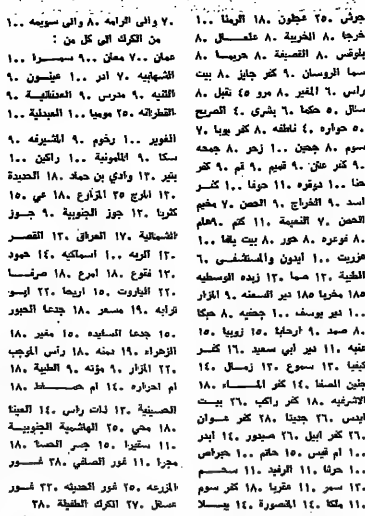 جرش ٢٥٠ عجلون ١٨٠ الرمثا ١٠٠
خرجا ٨٠ الخريبة ٨٠ علعال ٨٠
يلوقس ٨٠ القصيفة ٨٠ حريما ٨٠
سما الروسان ٩٠ كفر جايز ٨٠ بيت
راس ٦٠ المغير ٨٠ مرو ٤٥ تقبل ٨٠
سال ٥٠ حكما ٦٠ بشرى ٤٠ الصريح
٥٠ حواره ٤٠ ناطفه ٨٠ كفر يوبا ٧٠
سوم ٨٠ جحين ١٠٠ زحر ٨٠ جمحه
٩٠ كفر عان ٩٠ قميم ٩٠ قم ٩٠ كفر
حتا ١٠٠ دوقره ١١٠ حوفا ١٠٠ كفر
اسد ٩٠ الخراج ٩٠ الحصن ٧٠ مخيم
الحصن ٧٠ النعيمة ١١٠ كتم ٩٠ هام
٨٠ فوعره ٨٠ حور ٨٠ بيت يافا ١٠٠
عزريت ١٠٠ ايدون والمستشفى ٦٠
الطيبة ١٢٠ صما ١٢٠ زبده الوسطيه
١٨٥ مخربا ١٨٥ دير السعنه ٩٠ المزار
١٠٠ دير يوسف ١٠٠ جحفيه ٨٠ حبكا
٨٠ صمد ٩٠ ارحابا ١٥٠ زوبيا ١٥٠
عنبه ١١٠ دير ابي سعيد ١٦٠ كفر
كيفيا ١٣٠ سموع ١٣٠ زمال ١٤٠
جنين الصفا ١٤٠ كفر الماء ١٨٠
الاشرفيه ١٨٠ كفر راكب ٢٦٠ بيت
ايدس ٢٦٠ جديتا ٢٨٠ كفر عوان
٢٦٠ كفر ابيل ٢٦٠ صيدور ١٤٠ ابدر
١٠٠ ام قيس ١٥٠ حاتم ١٠٠ حبراص
١٠٠ حرثا ١١٠ الرفيد ١١٠ سحم
١٣٠ سمر ١١٠ عقربا ١٨٠ كفر سوم
١١٠ ملكا ١٤٠ المنصورة ١٤٠ يبلا
٧٠ والى الرامه ٨٠ والى سويمه ١٠٠
من الكرك الى كل من :
عمان ٧٠٠ معان ٩٠٠ سمرا ١٠٠
الشهابيه ٧٠ ادر ١٠٠ عينون ٩٠
الثنيه ٩٠ مدرس ٩٠ العدنانية ٩٠
القطرانه ٢٥٠ موميا ١٠٠ العبدلية ١٠٠
الغوير ١٠٠ رخوم ٩٠ المشيرفه ٩٠
سكا ٩٠ المامونية ١٠٠ راكين ١٠٠
بتير ١٣٠ وادي بن حماد ١٨٠ الحديدة
١٣٠ ابارج ٣٥ المزارع ١٨٠ عي ١٥٠
كثربا ١٣٠ جوز الجنوبية ٩٠ جوز
الشمالية ١٧٠ العراق ١٣٠ القصر
١٣٠ الربه ١٠٠ اسماكيه ١٤٠ حمود
١٣٠ فقوع ١٨٠ امرع ١٨٠ صرفا
٢٢٠ الياروت ١٥٠ اريحا ٢٢٠ ابو
ترابه ١٩٠ مسعر ١٨٠ جدعا الجبور
١٥٠ جدعا السايده ١٥٠ مغير ١٨٠
الزهراء ١٩٠ دمنه ١٨٠ رأس الموجب
٢٢٠ المزار ٩٠ مؤته ٩٠ الطيبة ١٨٠
ام احراره ١٤٠ ام حمط ١٨٠
الحسينية ١٣٠ ذات راس ١٤٠ العينا
١٨٠ محي ٢٥٠ الهاشمية الجنوبية
١١٠ سقيرا ١٥٠ جسر الحسا ١٨٠
مجرا ١١٠ غور الصافي ٣٨٠ غور
المزرعه ٢٥٠ غور الحديثه ٣٣٠ غور
عسال ٢٧٠ الكرك الطفيلة ٣٨٠